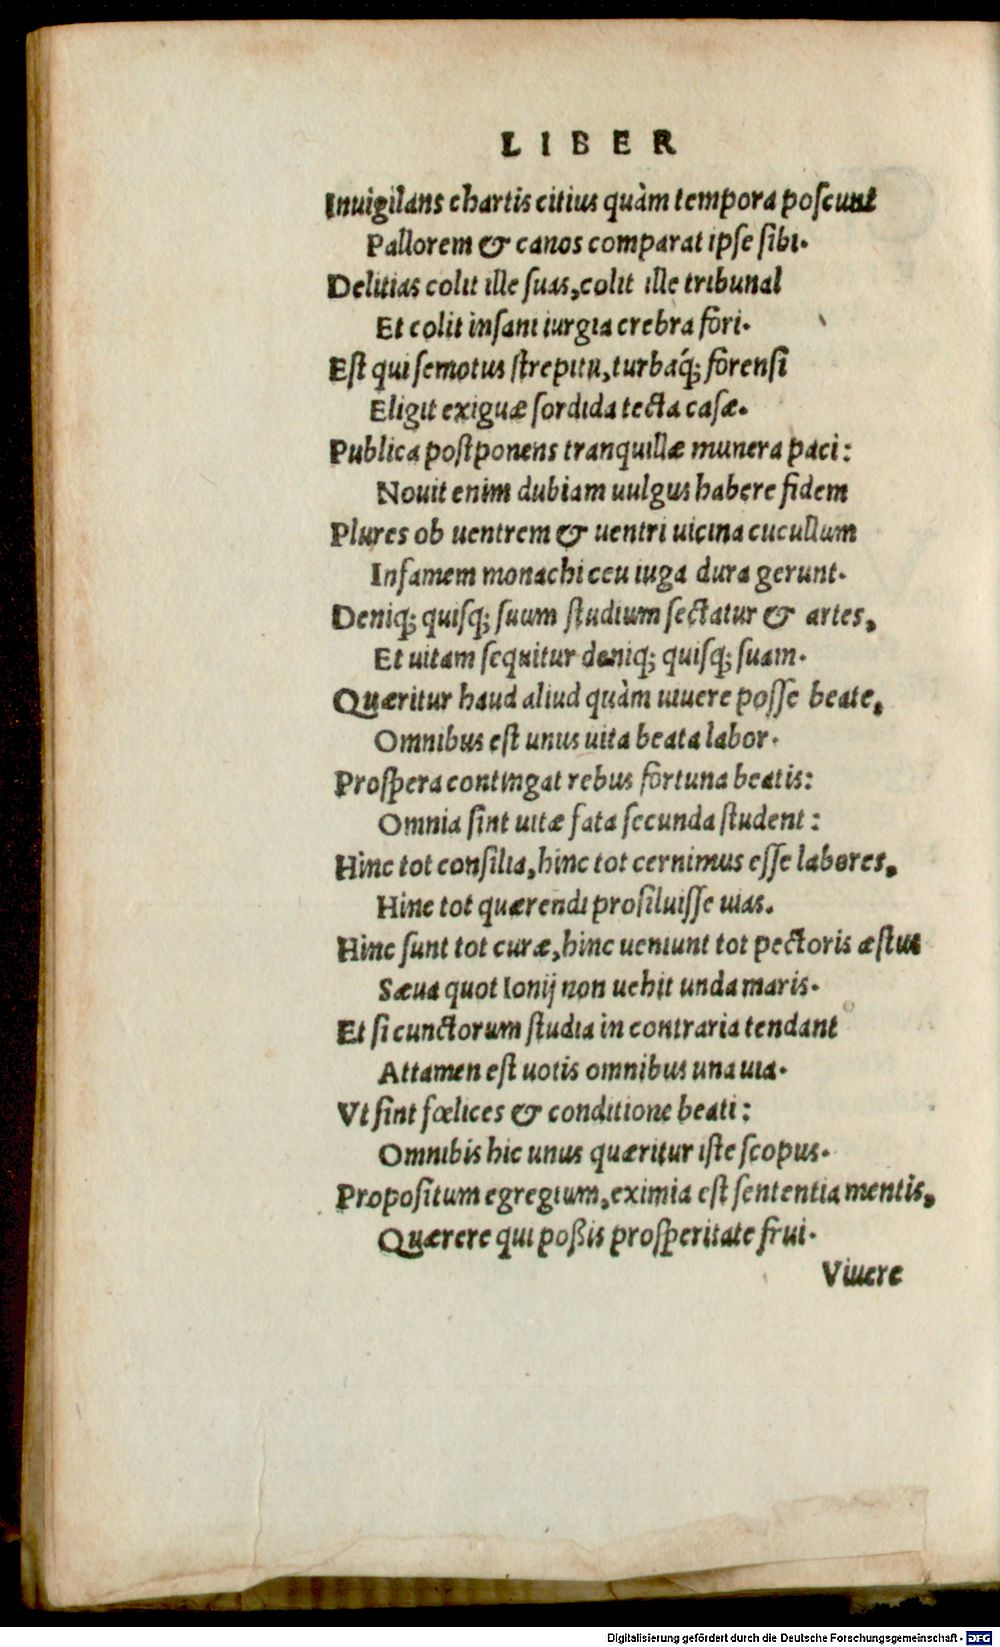 LIBER
Inuigilans chartis citius quàm tempora poscunt
Pallorem & canos comparat ipse sibi.
Delitias colit ille suas, colit ille tribunal
Et colit insani iurgia crebra fori.
Est qui semotus strepitu, turbaq́; forensi
Eligit exiguæ sordida tecta casæ.
Publica postponens tranquillæ munera paci:
Nouit enim dubiam uulgus habere fidem
Plures ob uentrem & uentri uicina cucullum
Infamem monachi ceu iuga dura gerunt.
Deniq; quisq; suum studium sectatur & artes,
Et uitam sequitur deniq; quisq; suam.
Quæritur haud aliud quàm uiuere posse beate,
Omnibus est unus uita beata labor.
Prospera contingat rebus fortuna beatis:
Omnia sint uitæ fata secunda student:
Hinc tot consilia, hinc tot cernimus esse labores,
Hinc tot quærendi prosiluisse uias.
Hinc sunt tot curæ, hinc ueniunt tot pectoris æstus
Sæua quot Ionij non uehit unda maris.
Et si cunctorum studia in contraria tendant
Attamen est uotis omnibus una uia.
Vt sint fœlices & conditione beati:
Omnibis hic unus quæritur iste scopus.
Propositum egregium, eximia est sententia mentis,
Quærere qui poßis prosperitate frui.
Viuere
Digitalisierung gefördert durch die Deutsche Forschungsgemeinschaft - DFG